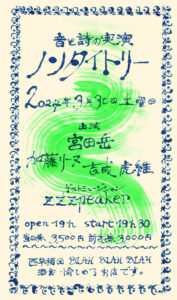 音と詩の実演
ノンタイトリー
2024年3月30日土曜日
出演
宮田岳
加藤リーヌ 吉成虎維
ゲストミュージシャン
zzzpeaker
open 19h start 19h30
当日券 3500円 前売券 3,000円
西早稲田 BLAH BLAH BLAH
酒、愉しめるお店です。